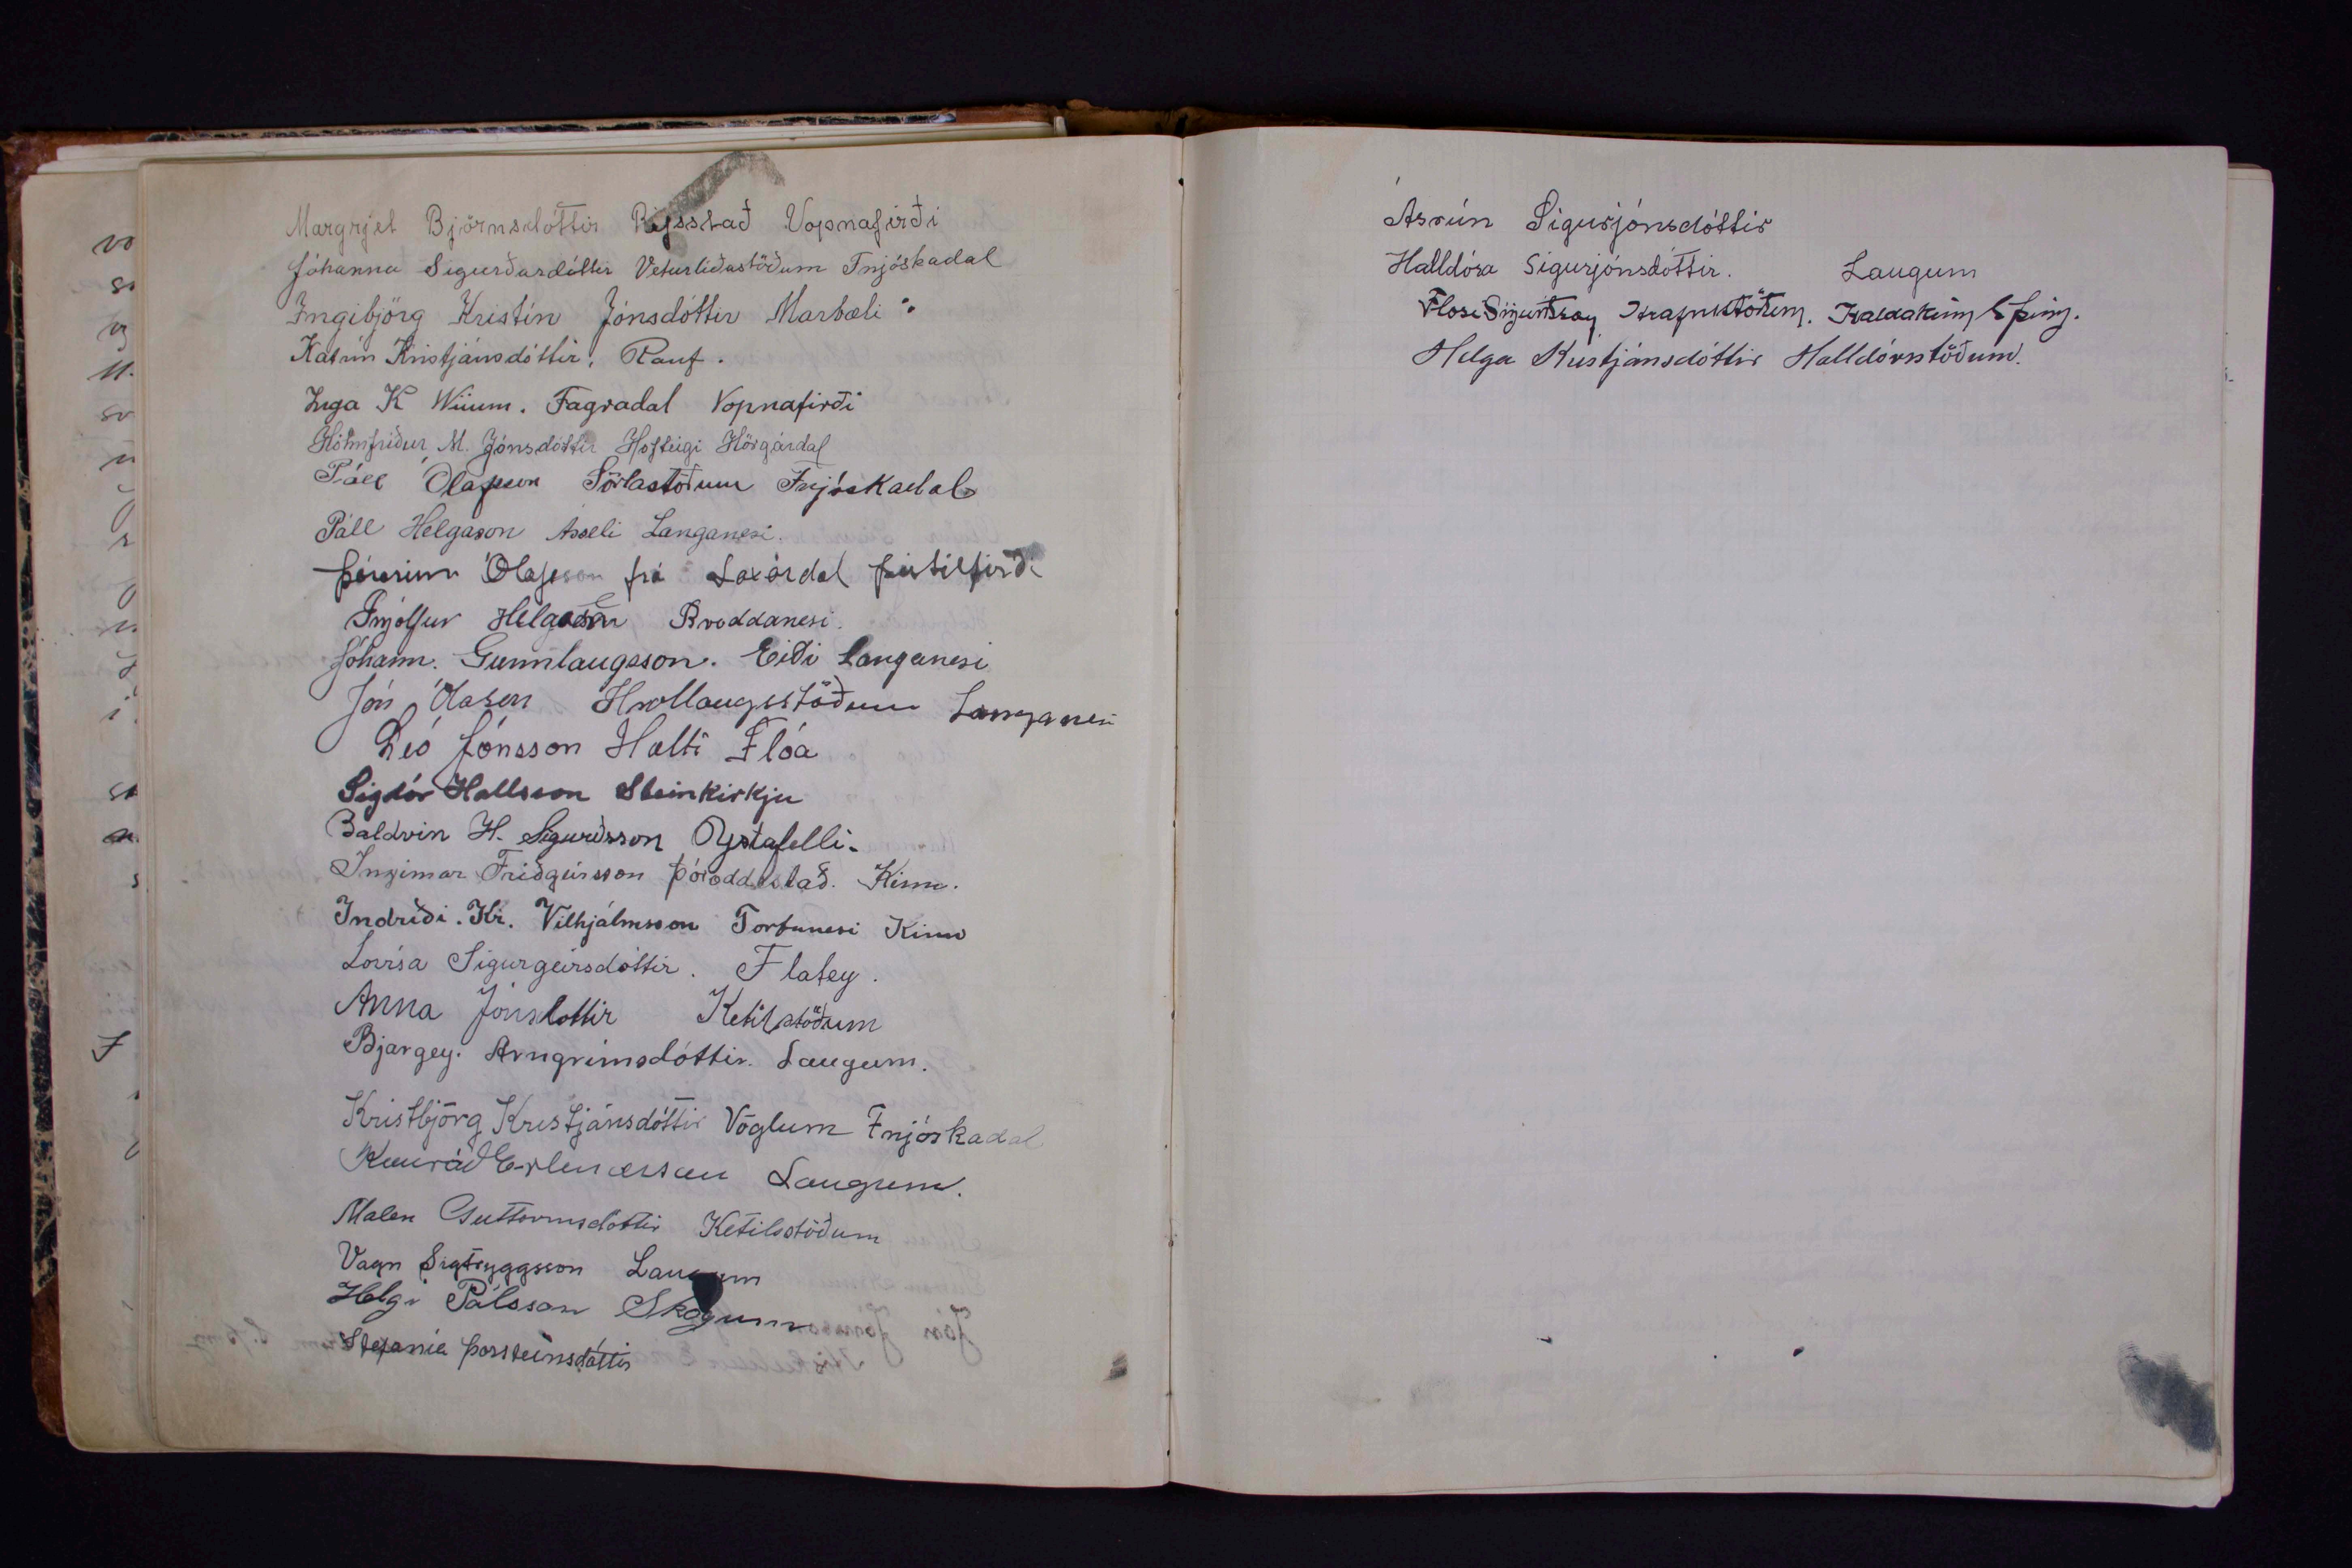 Margrjet Björnsdóttir Rjfsstað Vopnafirði
Jóhanna Sigurðardóttir Veturliðastöðum Fnjóskadal
Ingibjörg Kristín Jónsdóttir Marbæli
Katrín Kristjánsdóttir, Rauf.
Inga K Wiium. Fagradal Vopnafirði
Hólmfríður M. Jónsdóttir Hofteigi Hörgárdal
Páll Ólafsson Sörlastöðum Fnjóskadal
Páll Helgason Ásseli Langanesi.
Þórarinn Ólafsson frá Laxárdal Þistilfirði
Brjólfur Helgason Broddanesi.
Jóhann. Gunnlaugsson. Eiði Langanesi
Jón Ólason Hrollaugsstöðum Langanesi
Leó Jónsson Holti Flóa
Sigdór Hallsson Steinkirkju
Baldvin H. Sigurðsson Ystafelli.
Ingimar Friðgeirsson Þóroddsstað. Kinn.
Indriði. Kr. Vilhjálmsson Torfunesi Kinn
Lovísa Sigurgeirsdóttir. Flatey.
Anna Jónsdottir Ketilstöðum
Bjargey. Arngrímsdóttir. Laugum.
Kristbjörg Kristjánsdóttir Vöglum Fnjóskadal
Konráð Erlendsson Laugum.
Malen Guttormsdóttir Ketilsstöðum
Vagn Sigtryggsson Laugum
Helgi Pálsson Skógum
Stefanía Þorsteinsdóttir
Ásrún Sigurjónsdóttir
Halldóra Sigurjónsdóttir. Laugum
Flosi Sigurðsson Hrafnsstöðum. Kaldakinn S Þing.
Helga Kristjánsdóttir Halldórsstöðum.